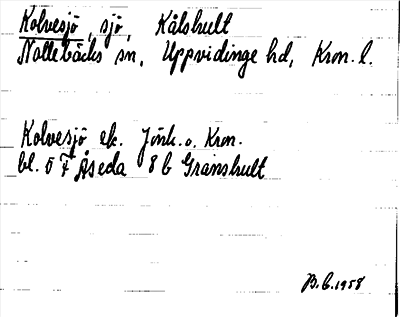 Kolvesjö, sjö, Kålshult
Nottebäcks sn, Uppvidinge hd, Kron. l.
Kolvesjö ek. Jönk. o. Kron.
bl. 5 F Åseda 8 b Granshult
B.E. 1958